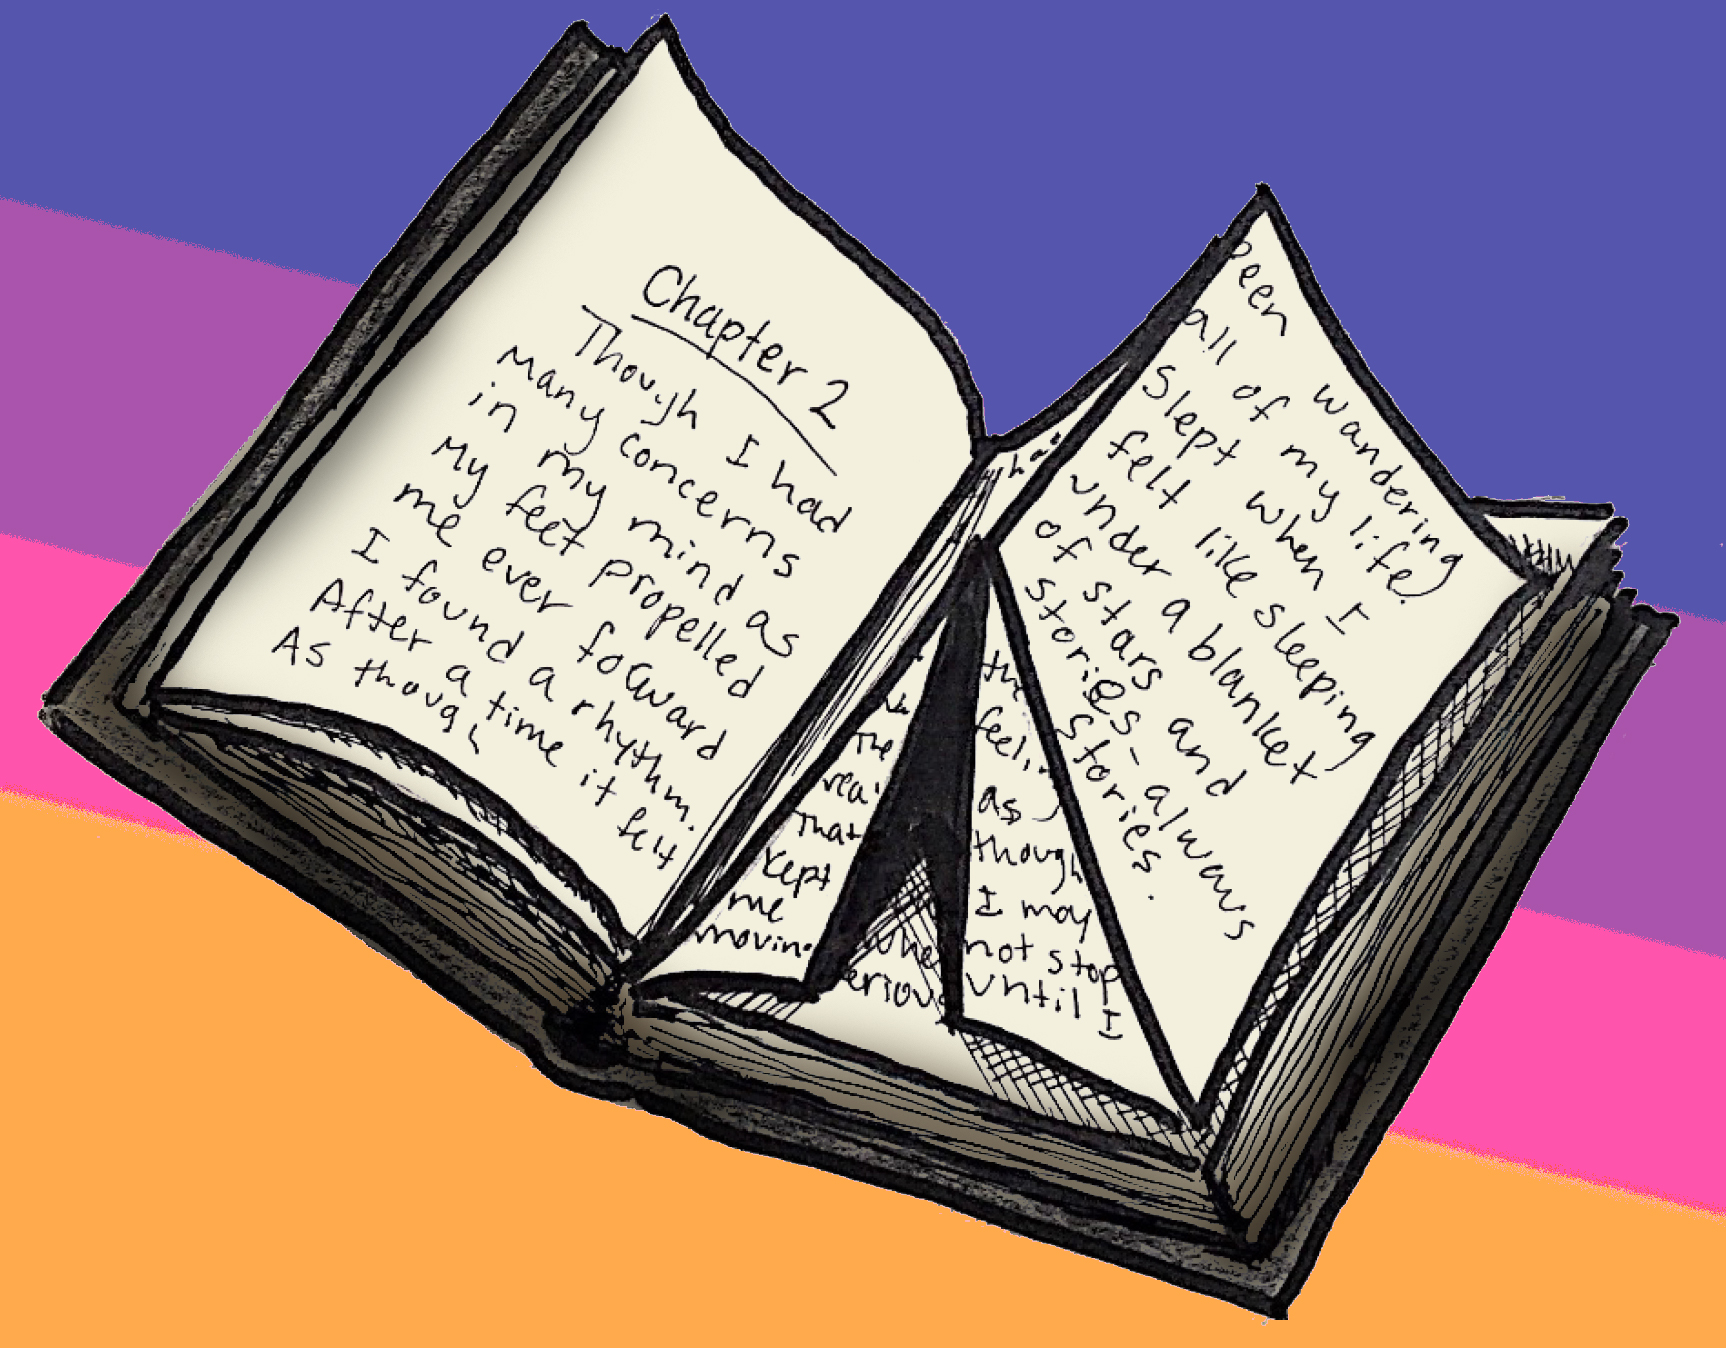 Chapter 2
Though I had
many concerns
in my mind as
My feet propelled
me ever foward
I found a rhythm.
After a time it felt
As though
been wandering
all of my life.
Slept when I
felt like sleeping
under a blanket
of stars and
stories- always
stories.
The
That
kept
me
the
as
though
I may
not stop
until I